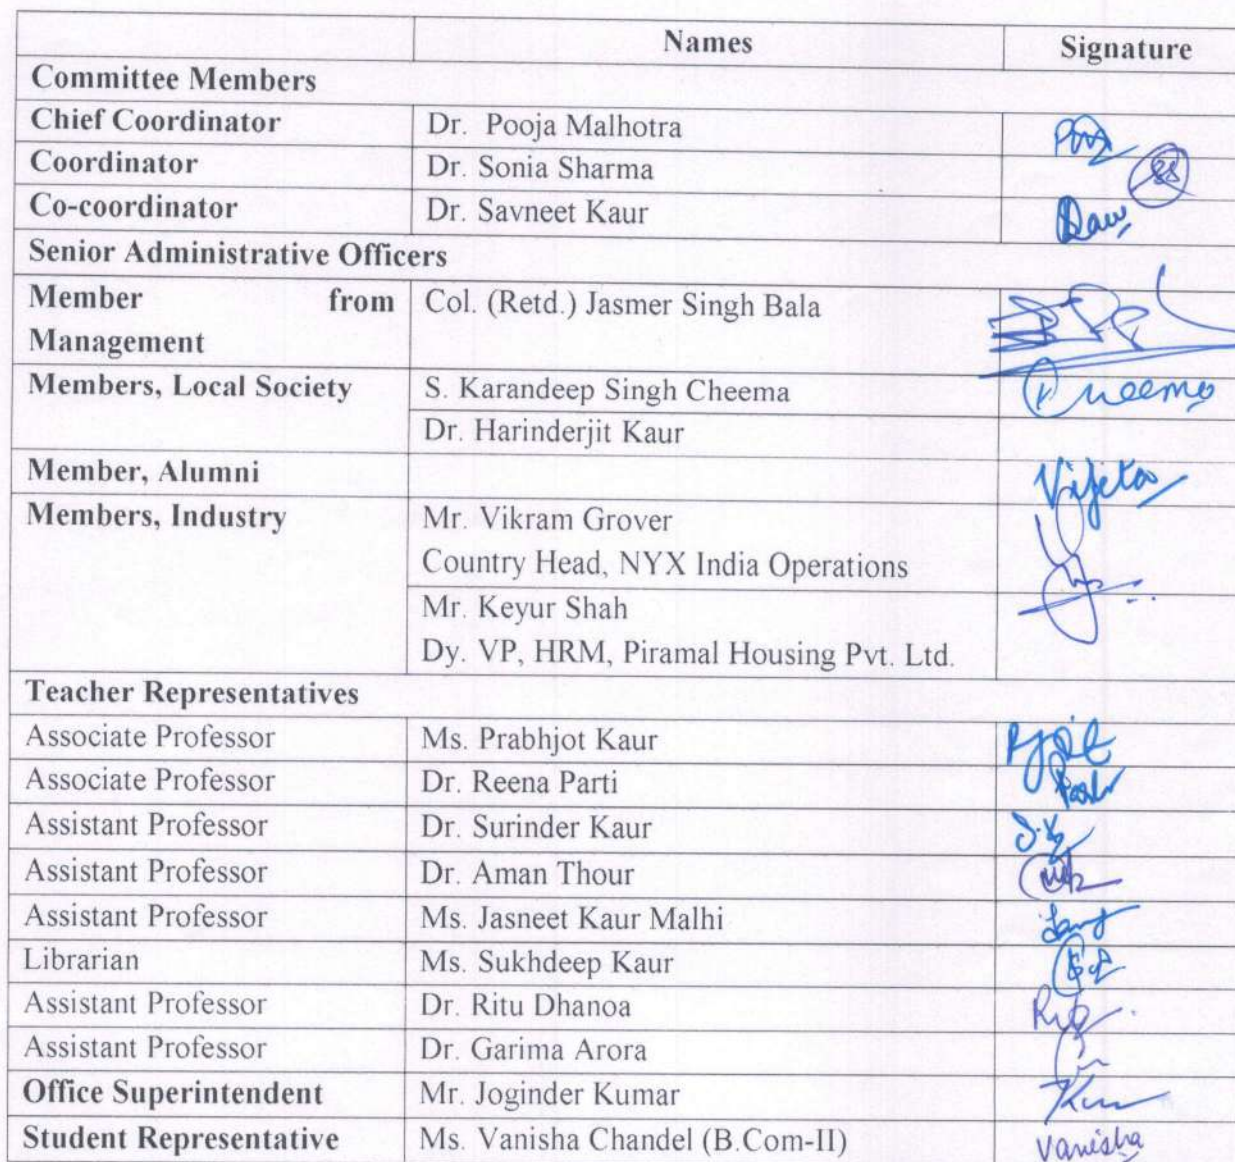 Names Signature
Committee Members
Chief Coordinator Dr. Pooja Malhotra
Coordinator Dr. Sonia Sharma
Co-coordinator Dr. Savneet Kaur
Senior Administrative Officers
Member from Col. (Retd.) Jasmer Singh Bala
Management
Members, Local Society S. Karandeep Singh Cheema
Cheema
Dr. Harinderjit Kaur
Member, Alumni Vijeta
Members, Industry Mr. Vikram Grover
Country Head, NYX India Operations
Mr. Keyur Shah
Dy. VP, HRM, Piramal Housing Pvt. Ltd.
Teacher Representatives
Associate Professor Ms. Prabhjot Kaur
Associate Professor Dr. Reena Parti
Assistant Professor Dr. Surinder Kaur
Assistant Professor Dr. Aman Thour
Assistant Professor Ms. Jasneet Kaur Malhi
Librarian Ms. Sukhdeep Kaur
Assistant Professor Dr. Ritu Dhanoa
Assistant Professor Dr. Garima Arora
Office Superintendent Mr. Joginder Kumar
Student Representative Ms. Vanisha Chandel (B.Com-II) Vanisha